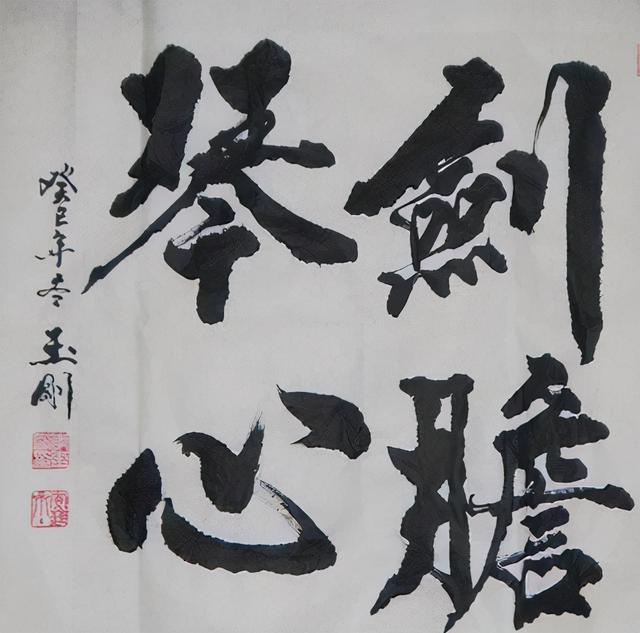 劍膽
琴心
癸巳年冬玉剛